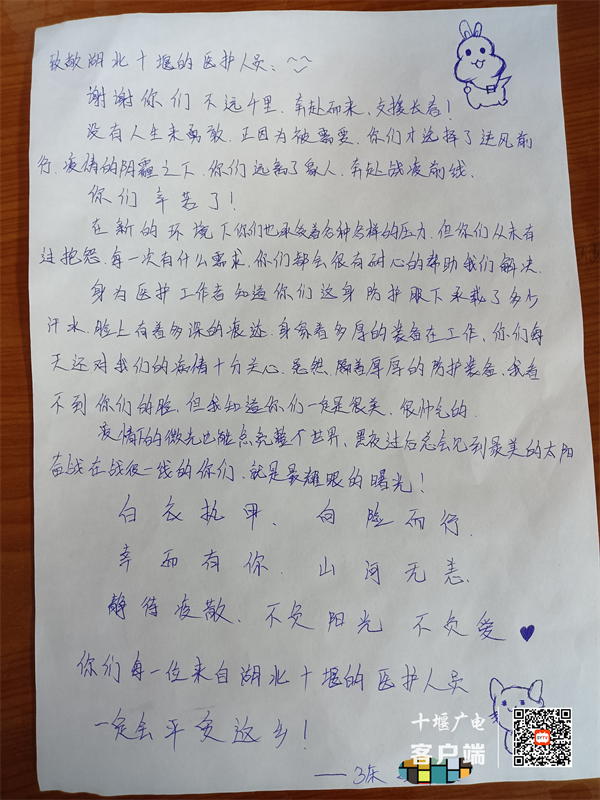 致敬湖北十堰的医护人员：
谢谢你们不远千里，奔赴而来，支援长春！
没有人生来勇敢，正因为被需要，你们才选择了逆风前
行，疫情的阴霾之下，你们远离了家人，奔赴战疫前线，
你们辛苦了！
在新的环境下你们也承受着各种各样的压力，但你们从未有
过抱怨，每一次有什么需求，你们都会很有耐心的帮助我们解决，
身为医护工作者知道你们这身防护服下承载了多少
汗水，脸上有着多深的痕迹，身穿着多厚的装备在工作，你们每
天还对我们的病情十分关心，虽然，隔着厚厚的防护装备，我看
不到你们的脸，但我知道你们一定是很美，很帅气的，
疫情下的微光也能点亮整个世界，黑夜过后总会见到最美的太阳
奋战在战疫一线的你们，就是最耀眼的曙光！
白衣执甲，向险而行，
幸而有你，山河无恙，
静待疫散，不负阳光 不负爱
你们每一位来自湖北十堰的医护人员
一定会平安返乡！
——3床
十堰广电
客户端